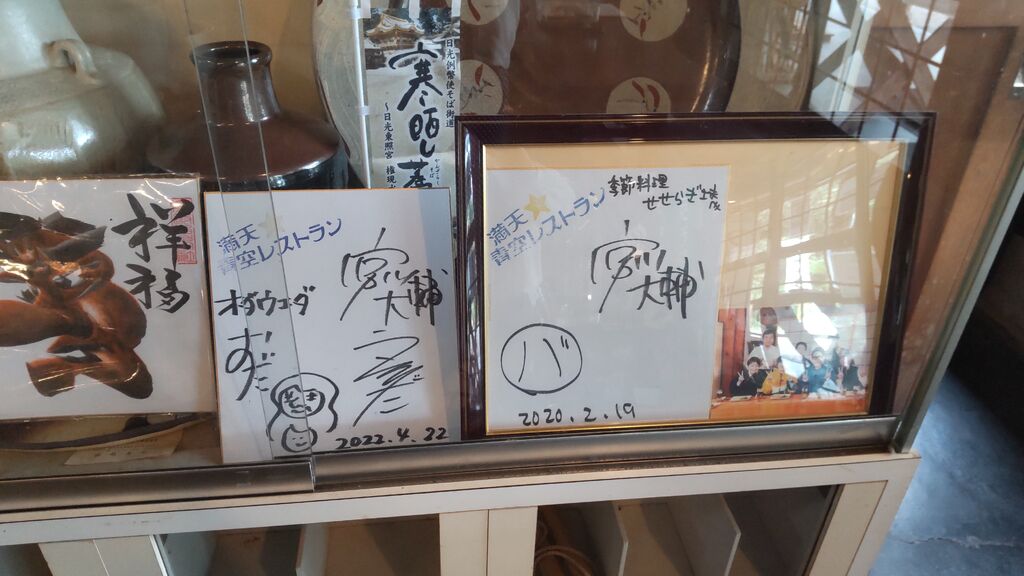 日光例幣使そば街道
寒晒しそ
～日光東照宮 権現
祥福
満天
青空レストラン
宮川大輔
オダウエダ
おだ
うえだ
2022.4.22
満天☆
青空レストラン
季節料理
せせらぎ
宮川大輔
バ
2020.2.19